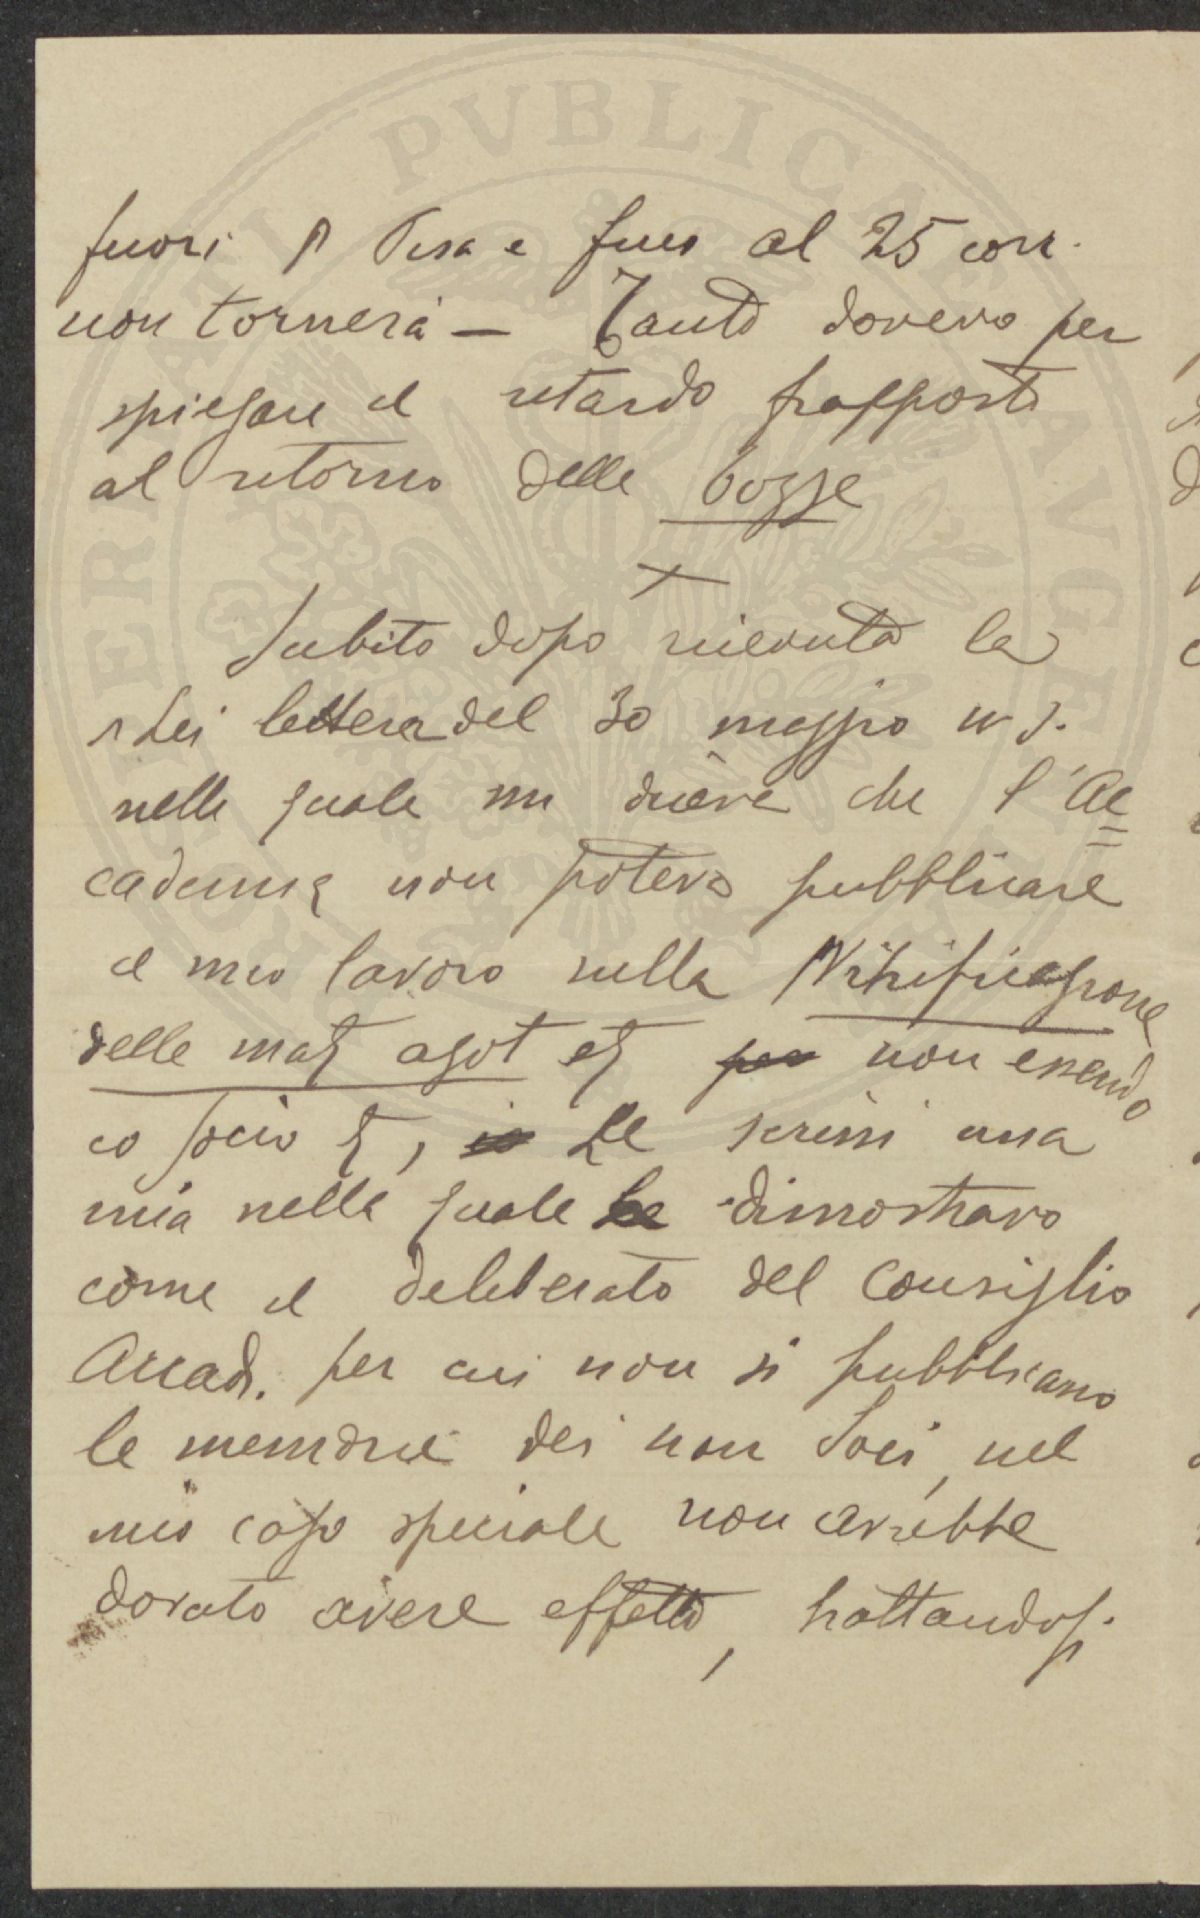 fuori Pisa e fino al 25 corr.
non tornerà — Tanto dovevo per
spiegare il ritardo frapposto
al ritorno delle bozze
+
Subito dopo ricevuta la
Lei lettera del 30 maggio u.s.
nella quale mi diceva che l'Ac=
cademia non poteva pubblicare
il mio lavoro sulla Nitrificazione
delle mat azot non essendo
io socio, Le scrissi una
mia nella quale dimostravo
come il deliberato del Consiglio
Accad. per cui non si pubblicano
le memorie dei non Soci, nel
mio caso speciale non avrebbe
dovuto avere effetto, trattandosi
PVBLICAE